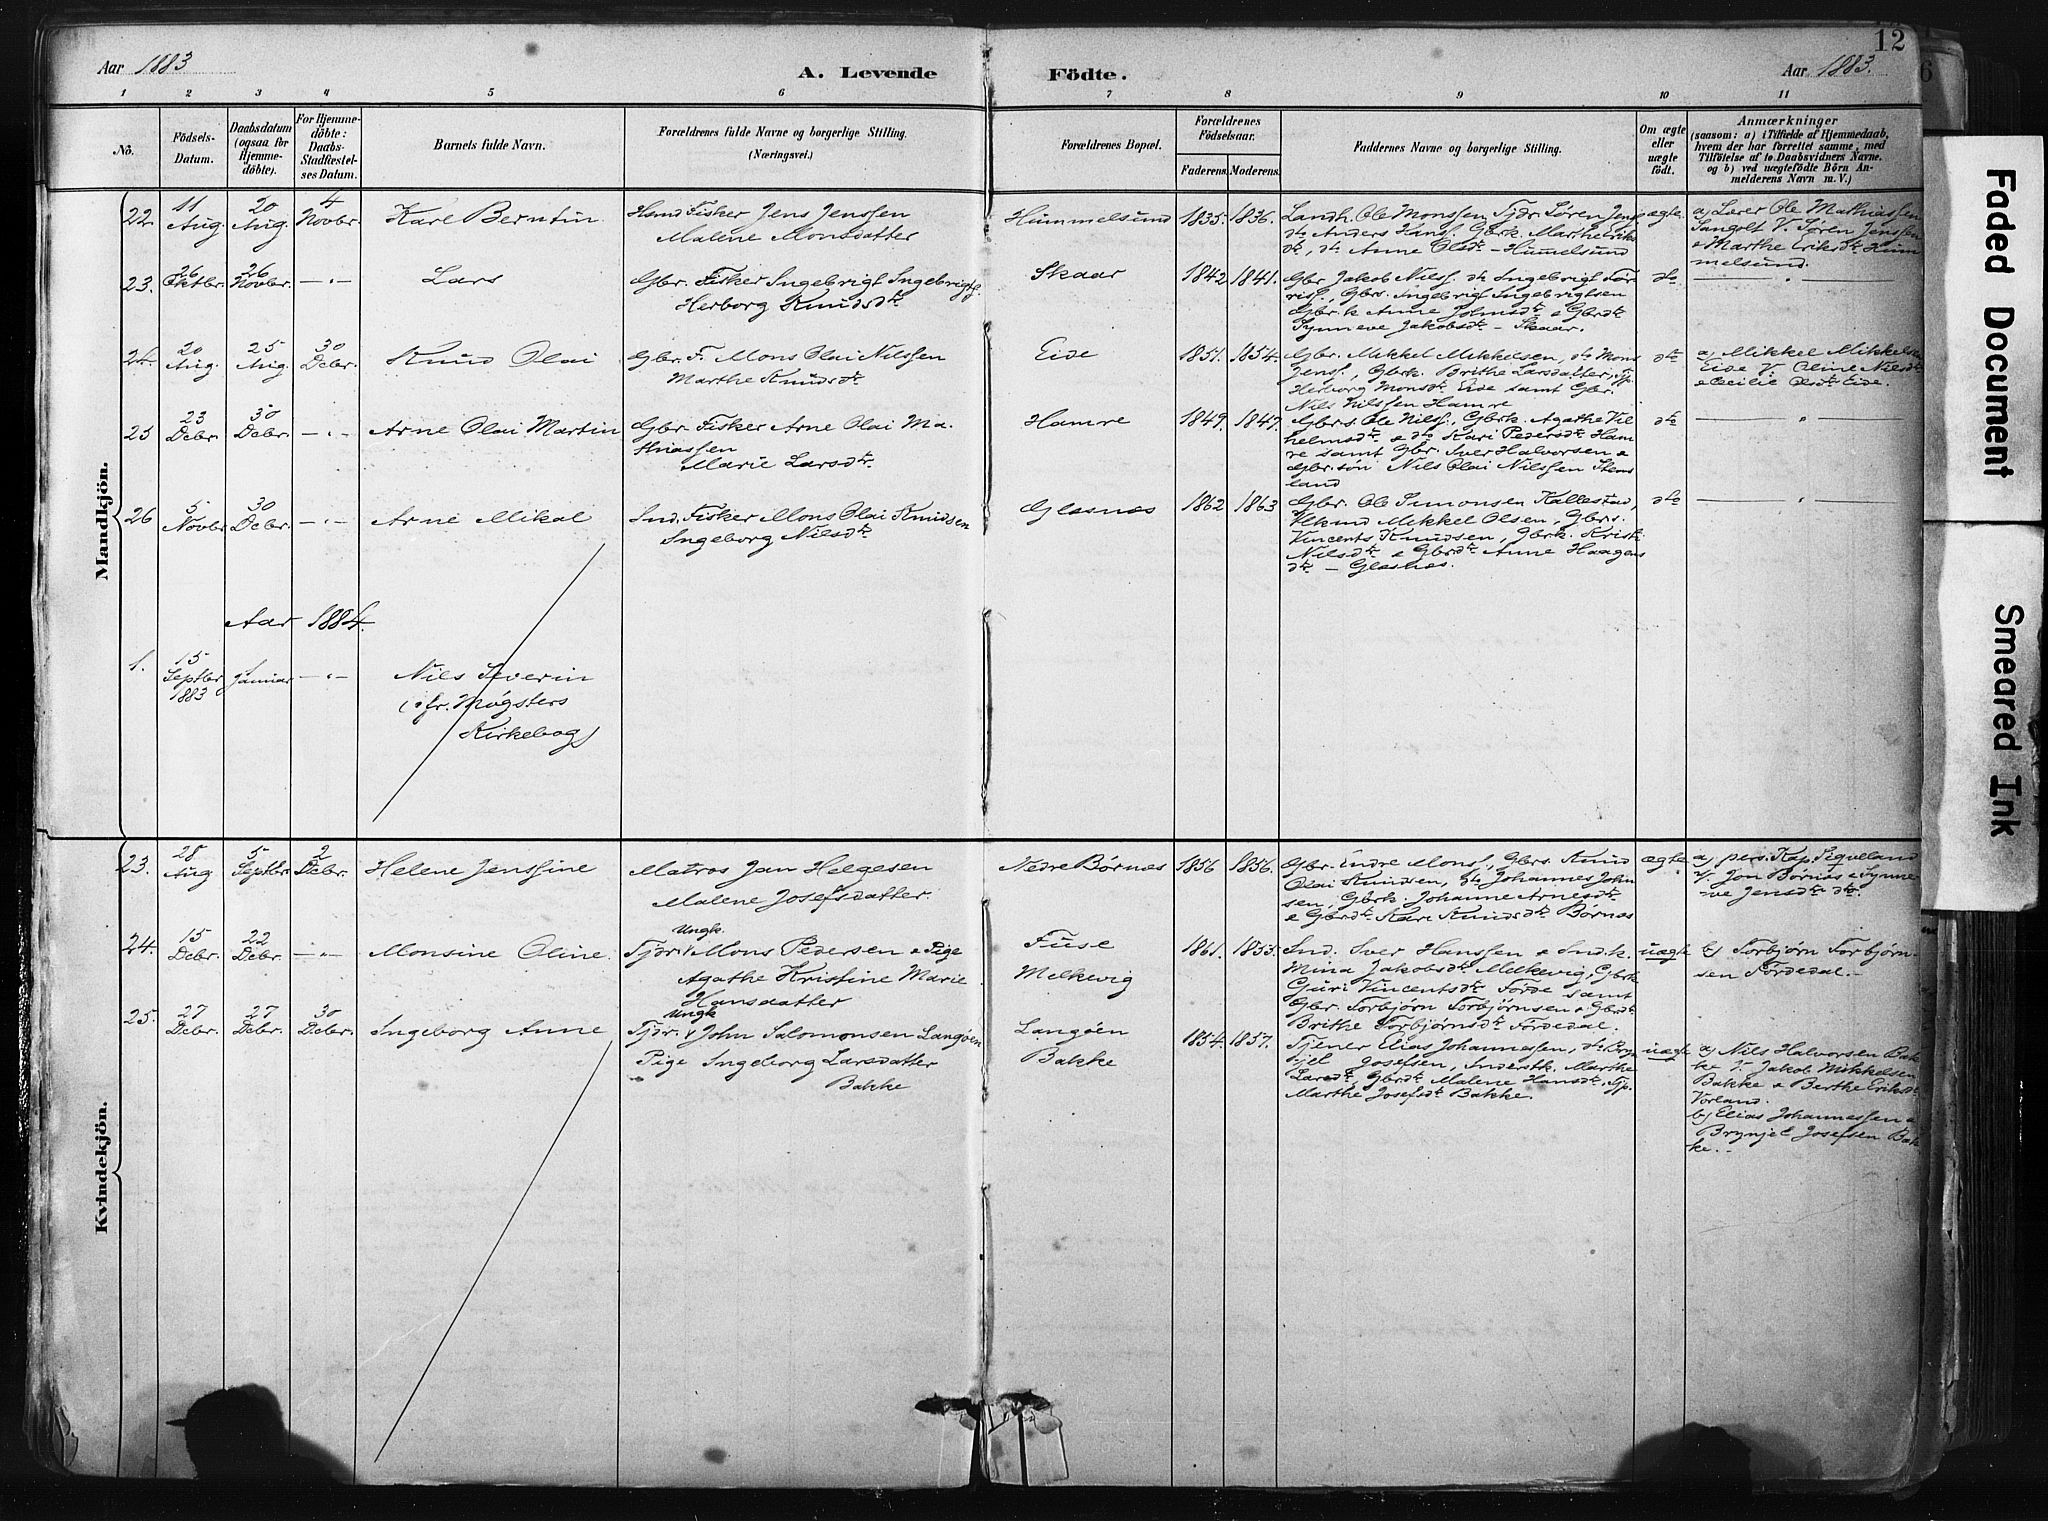 Aar 1883
A. Levende
Födte.
Aar 1883.
12
6
1 2 3 4 5 6 7 8 9 10 11
No.
Födsels-
Datum.
Daabsdatum
(ogsaa for
Hjemme-
döbte).
For Hjemme-
döbte:
Daabs-
Stadfæstel-
ses Datum.
Barnets fulde Navn.
Forældrenes fulde Navne og borgerlige Stilling.
(Næringsvei.)
Forældrenes Bopæl.
Forældrenes
Födselsaar.
Faderens.
Moderens.
Faddernes Navne og borgerlige Stilling.
Om ægte
eller
uægte
födt.
Anmærkninger
(saasom: a) i Tilfælde af Hjemmedaab,
hvem der har forrettet samme, med
Tilföielse af to Daabsvidners Navne.
og b) ved uægtefödte Börn An-
melderens Navn m. V.)
Mandkjön.
22. 11 Aug. 20 Aug. 4 Novbr. Karl Berntin
Fisker Jens Jenssen
Malene Monsdatter
Hummelsund 1835. 1836.
Landh. Ole Monssen, Tjdr. Søren Jens
dto Anders Hansf. Gbrk. Marthe Eriks
dtr, dto Anne Olsdtr - Hummelsund
ægte
a) Lærer Ole Mathiassen
Langøt V. Søren Jenssen
& Marthe Eriksdtr Hum
melsund.
23. 26 Oktbr. 26 Novbr. -"- Lars
Gbr. Fisker Ingebrigt Ingebrigtsf.
Herborg Knudsdtr.
Skaar 1842 1841.
Gbr Jakob Nilsf. dto Ingebrigt Tor
risf., Gbrs. Ingebrigt Ingebrigtsen
Gbr.k Anne Johnsdtr & Gbrdtr
Synneve Jakobsdtr - Skaar.
dto
-"-
24. 20 Aug. 25 Aug. 30 Debr. Knud Olai
Gbr. F. Mons Olai Nilssen
Marthe Knudsdtr.
Eide 1851. 1854.
Gbr. Mikkel Mikkelsen, dto Mons
Jensf., Gbrk. Brithe Larsdatter, Tjp.
Herborg Monsdtr Eide samt Gbr.
Nils Nilssen Hamre
dto
a) Mikkel Mikkelsen
Eide V Oline Nilsdtr
& Cecilie Olsdtr Eide.
25 23 Debr. 30 Debr. -"- Arne Olai Martin
Gbr. Fisker Arne Olai Ma-
thiassen
Marie Larsdtr.
Hamre 1849. 1847.
Gbrs. Ole Nilsf., Gbrk. Agathe Vil
helmsdtr. & dto Kari Pedersdtr Ham
re samt Gbr. Iver Halvorsen &
Gbr.søn Nils Olai Nilssen Stens
land
dto
-"-
26 5 Novbr. 30 Debr. -"- Arne Mikal
Ind. Fisker Mons Olai Knudsen
Ingeborg Nilsdtr.
Glesnæs 1862 1863
Gbr. Ole Simonsen Kallestad,
Ukmd Mikkel Olsen, Gbrs.
Vincents Knudsen, Gbrk. Kristi
Nilsdtr & Gbrdtr Anne Haagens
dtr - Glesnæs.
dto
-"-
Aar 1884.
1. 15 Septbr 1883 Januar -"- Nils Severin
(cfr. Møgsters
Kirkebog)
Kvindekjön.
23. 28 Aug 5 Septbr. 2 Debr. Helene Jenssine
Matros Jan Helgesen
Malene Josefsdatter.
Nedre Børnæs 1856 1856.
Gbr. Endre Monsf., Gbrs. Knud
Olai Knudsen, dto Johannes John
sen, Gbrk. Johanne Arnesdtr
& Gbrdtr. Kari Knudsdtr Børnæs
ægte
a) pers. Kap. Siqveland
V. Jon Børnæs & Synne-
ve Jensdtr dto.
24. 15 Debr. 22 Debr. -"- Monsine Oline.
Ungk.
Tjdr. v Mons Pedersen & Pige
Agathe Kristine Marie
Hansdatter
Fuse
Melkevig
1861. 1853.
Ind. Iver Hanssen & Ind.k.
Mina Jakobsdtr Melkevig, Gbrk
Guri Vincentsdtr Førde samt
Gbr. Torbjørn Torbjørnsen & Gbrdtr
Brithe Torbjørnsdtr Førdedal.
uægte
b) Torbjørn Torbjørn-
sen Førdedal.
25. 27 Debr. 27 Debr. 30 Debr. Ingeborg Anne
Ungk
Tjdr. v John Salomonsen Langøen
Pige Ingeborg Larsdatter
Bakke
Langøen
Bakke
1854. 1857.
Tjener Elias Johannessen, dto Bryn
jel Josefsen, Inderstk. Marthe
Larsdtr, Gbrdtr. Malene Hansdtr. Tjp.
Marthe Josefsdtr Bakke.
uægte
a) Nils Halvorsen Bak
ke V. Jakob Mikkelsen
Bakke & Berthe Eriksdtr
Vorland.
b) Elias Johannessen &
Brynjel Josefsen Bak
ke.
Faded Document
Smeared Ink